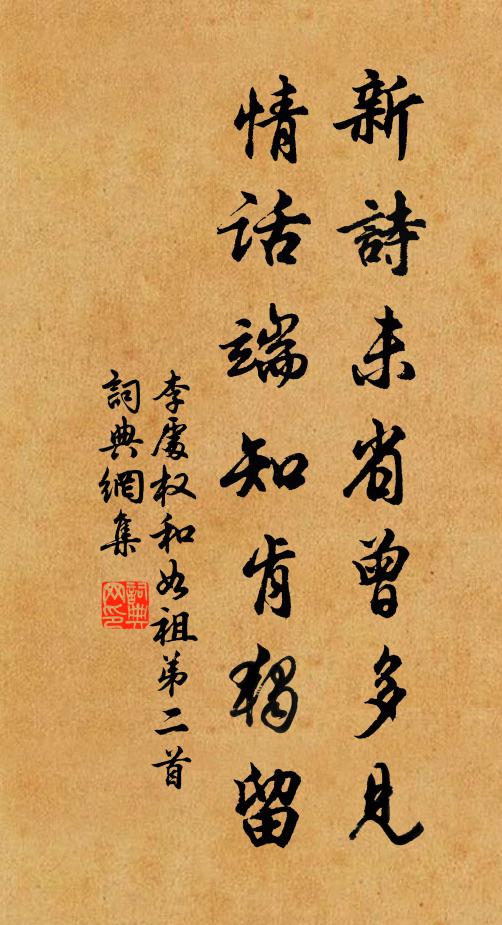 新詩未省曾多見
情話端知肯獨留
李處权和如祖第二首
詞典網集
詞典网印